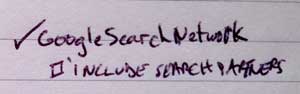 ✓GoogleSearchNetwork
☐ INCLUDE SEARCH PARTNERS